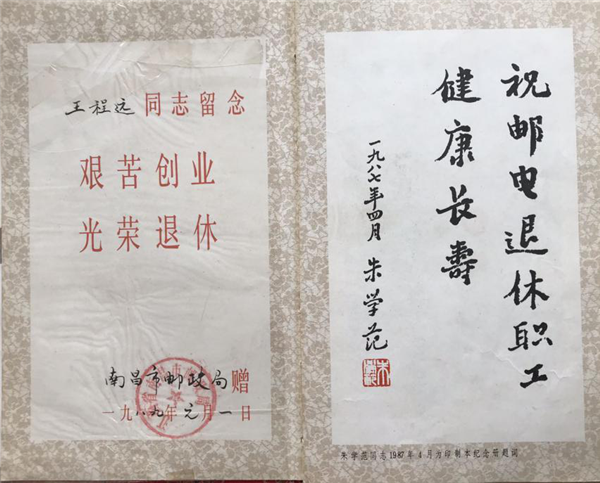 王程远同志留念
艰苦创业
光荣退休
南昌市邮政局赠
一九八九年元月一日
祝邮电退休职工
健康长寿
一九八七年四月 朱学范
朱学范同志1987年4月为印制本纪念册题词